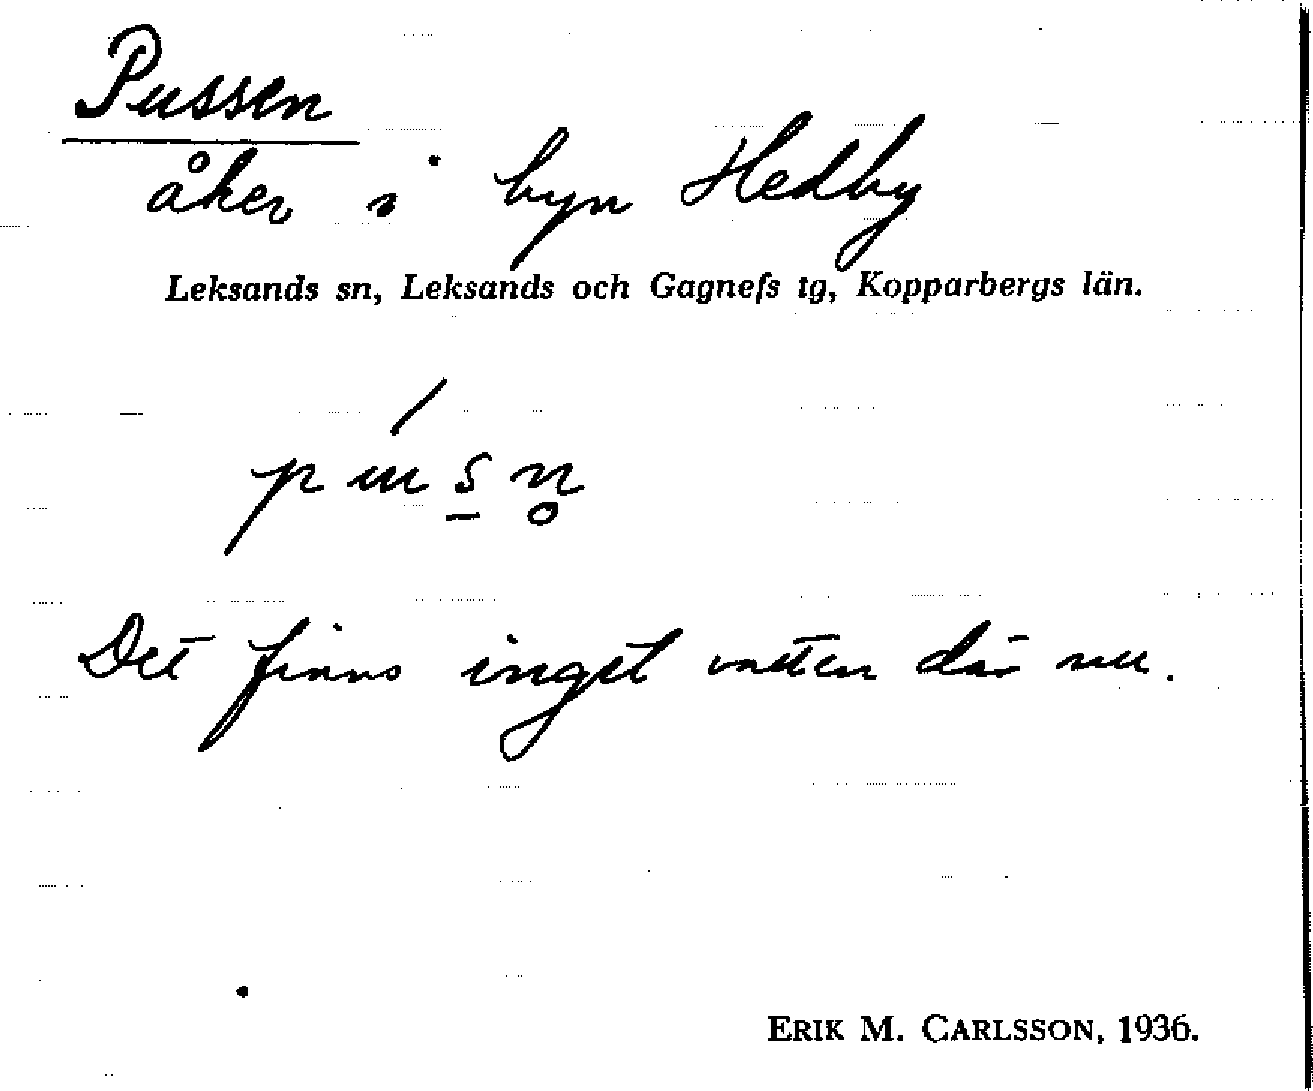 Pussen
åker i byn Hedby
Leksands sn, Leksands och Gagnefs tg, Kopparbergs län.
pús̲n̥
Det finns inget vatten där nu.
ERIK M. CARLSSON, 1936.